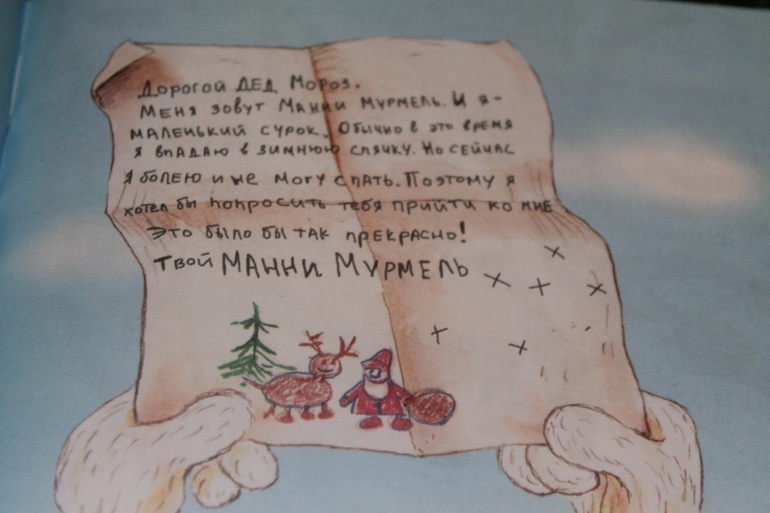 Дорогой Дед Мороз.
Меня зовут Манни Мурмель. И я-
маленький сурок. Обычно в это время
я впадаю в зимнюю спячку. Но сейчас
я болею и не могу спать. Поэтому я
хотел бы попросить тебя прийти ко мне
Это было бы так прекрасно!
Твой Манни Мурмель